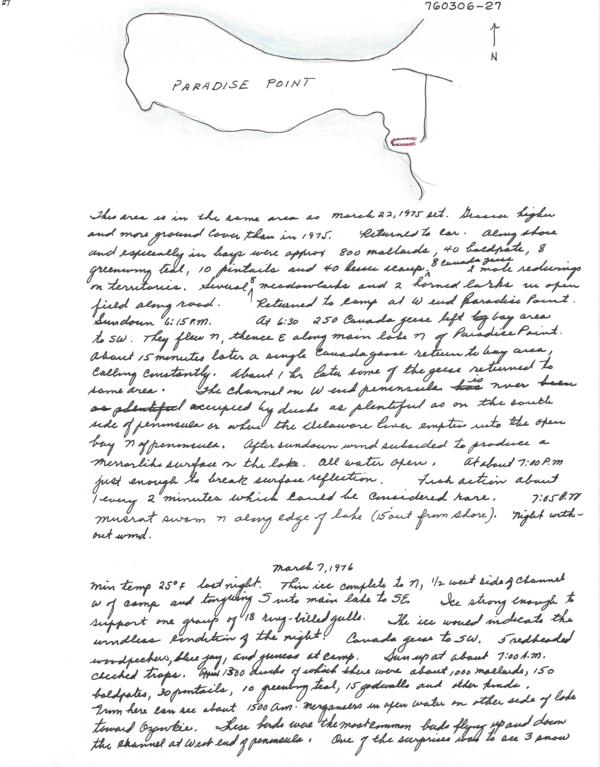 27
760306-27
N
PARADISE POINT
This area is in the same area as March 22, 1975 set. Grasses higher
and more ground cover than in 1975. Returned to car. Along shore
and especially in bays were approx 800 mallards, 40 baldpate, 8
greenwing teal, 10 pintails and 40 lesser scaup, 8 Canada geese 2 male redwings
on territories. Several 8 meadowlarks and 2 horned larks in open
field along road. Returned to camp at W end Paradise Point.
Sundown 6:15 P.M. At 6:30 250 Canada geese left bay area
to SW. They flew N, thence E along main lake N of Paradise Point.
About 15 minutes later a single Canada goose return to bay area,
calling constantly. About 1 hr later some of the geese returned to
same area. The channel on W end peninsula was never been
as plentiful occupied by ducks as plentiful as on the south
side of peninsula or where the Delaware River empties into the open
bay N of peninsula. After sundown wind subsided to produce a
mirrorlike surface on the lake. All water open. At about 7:00 P.M
just enough to break surface reflection. Fish action about
1 every 2 minutes which could be considered rare. 7:05 P.M
musrat swam N along edge of lake (15' out from shore). Night with-
out wind.
March 7, 1976
Min temp 25° F last night. Thin ice complete to N, 1/2 west side of channel
W of camp and tonguing S into main lake to SE. Ice strong enough to
support one group of 18 ring-billed gulls. The ice would indicate the
windless condition of the night. Canada geese to SW. 5 redheaded
woodpeckers, blue jay, and juncos at camp. Sun up at about 7:00 A.M.
Checked traps. 1300 ducks of which there were about 1000 mallards, 150
baldpates, 30 pintails, 10 greenwing teal, 15 gadwalls and other kinds.
From here can see about 1500 Am. mergansers in open water on other side of lake
toward Ozawkie. These birds were the most common birds flying up and down
the channel at West end of peninsula. One of the surprises was to see 3 snow